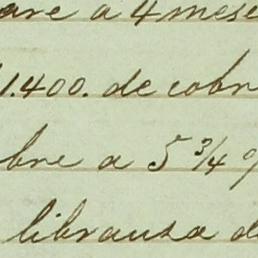 are a 4 mese
1.400. de cobr
bre a 5 3/4 %
libranza d